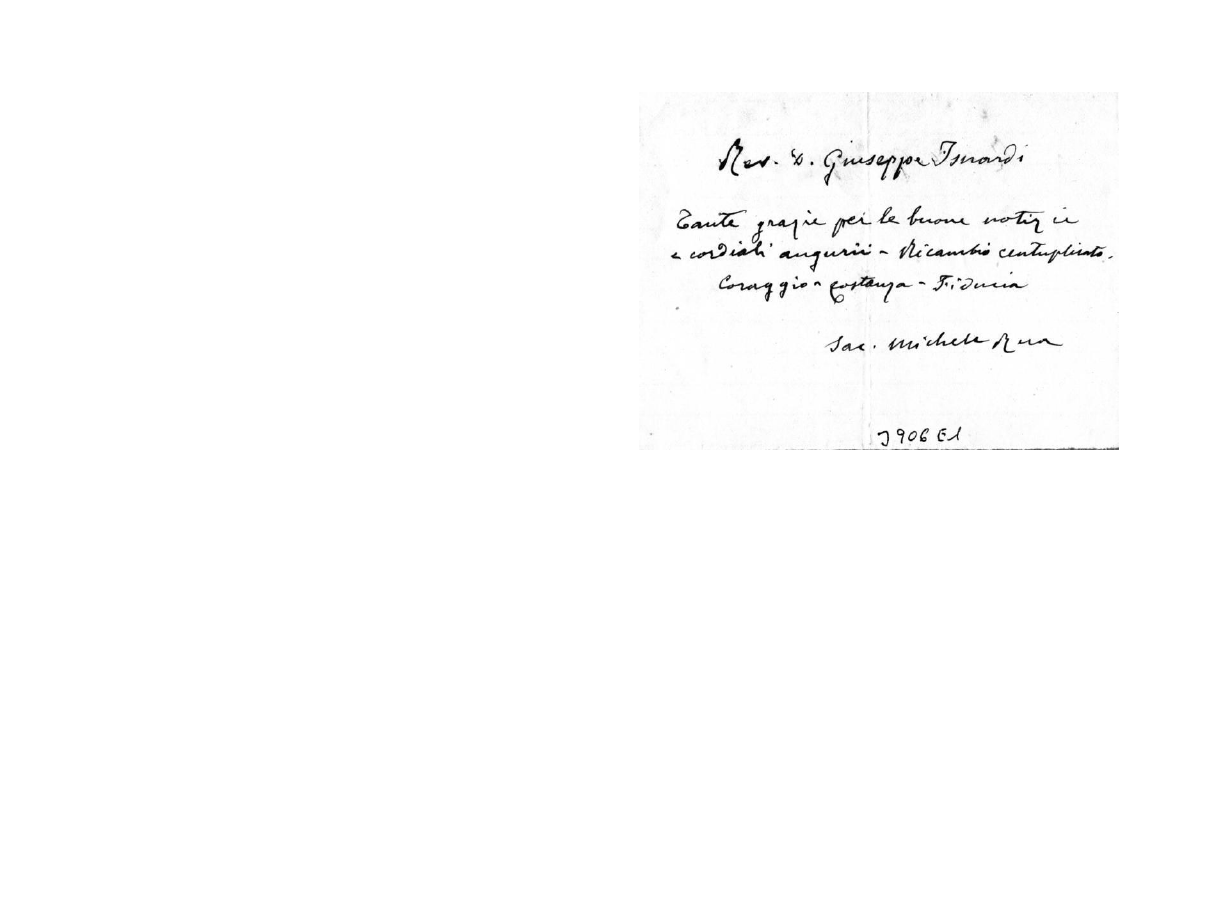 Rev. D. Giuseppe Isnardi
Tante grazie per le buone notizie
e cordiali augurii - Ricambio centuplicato.
Coraggio - Costanza - Fiducia
Sac. Michele Rua
J906 E1